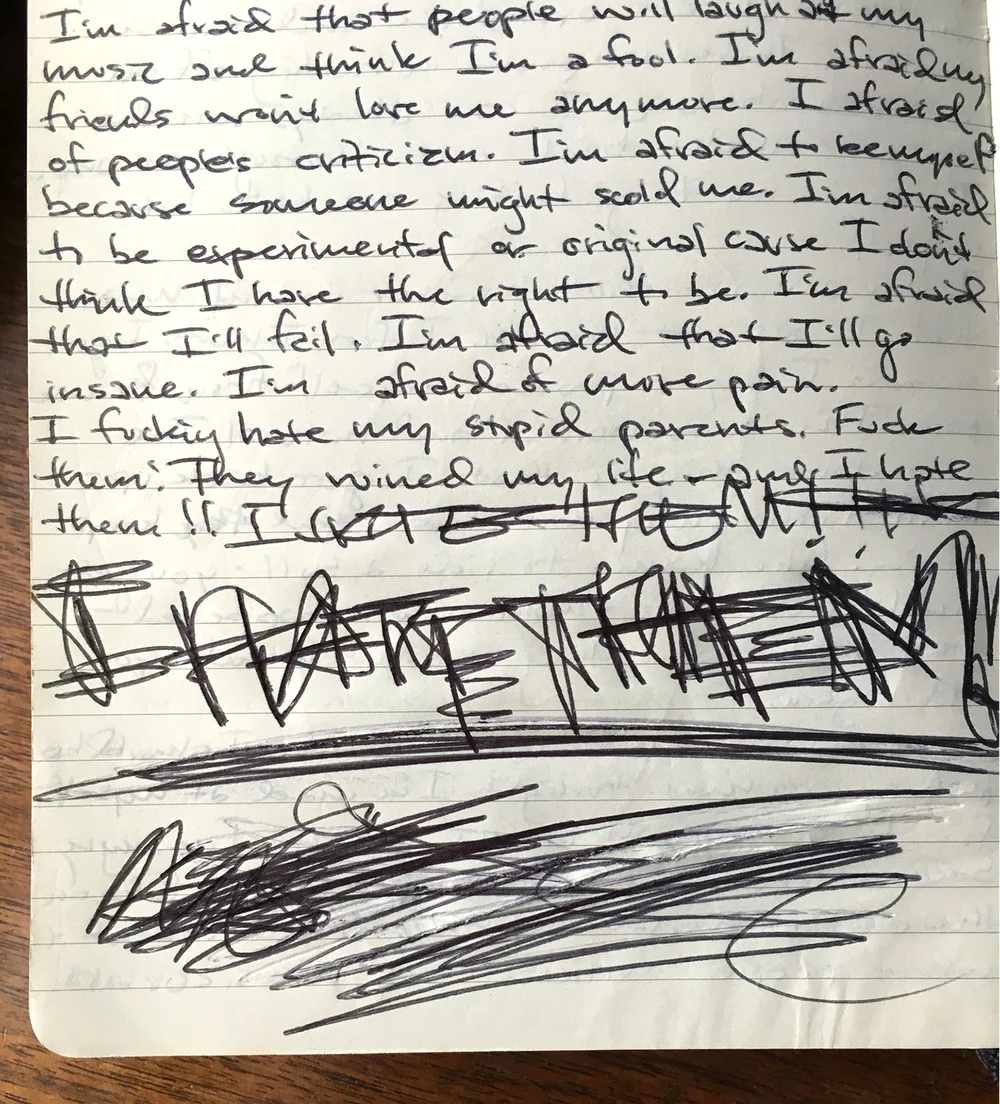 I'm afraid that people will laugh at my
music and think I'm a fool. I'm afraid my
friends won't love me anymore. I afraid
of people's criticizm. I'm afraid to be myself
because someone might scold me. I'm afraid
to be experimental or original cause I don't
think I have the right to be. I'm afraid
that I'll fail. I'm afraid that I'll go
insane. I'm afraid of more pain.
I fucking hate my stupid parents. Fuck
them! They ruined my life - and I hate
them!! I HATE THEM!!
I HATE THEM